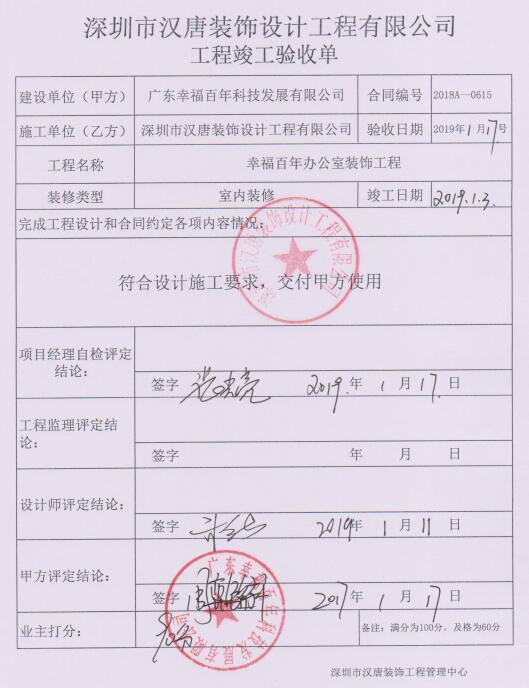 深圳市汉唐装饰设计工程有限公司
工程竣工验收单
建设单位（甲方） 广东幸福百年科技发展有限公司 合同编号 2018A—0615
施工单位（乙方） 深圳市汉唐装饰设计工程有限公司 验收日期 2019年1月17号
工程名称 幸福百年办公室装饰工程
装修类型 室内装修 竣工日期 2019.1.3.
完成工程设计和合同约定各项内容情况:
深圳市汉唐装饰设计工程有限公司
符合设计施工要求，交付甲方使用
项目经理自检评定
结论:
签字 2019年1月17.日
工程监理评定结
论:
签字 年 月 日
设计师评定结论:
签字 2019年1月11日
甲方评定结论:
签字 2017年1月17日
业主打分: 备注：满分为100分，及格为60分
深圳市汉唐装饰工程管理中心